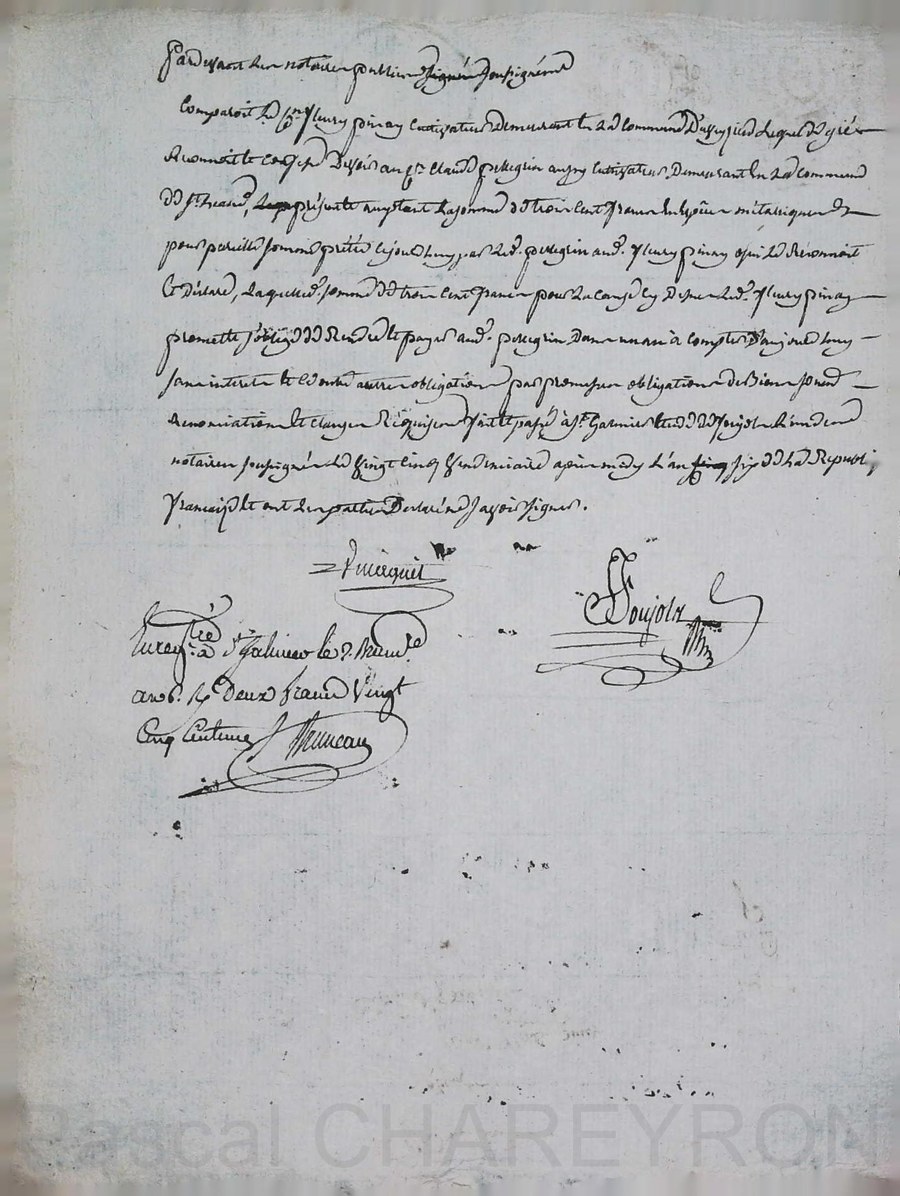 Pardevant les notaires publics signés soussignés
Comparoit le Cn fleury pinay cultivateur demeurant en la commune d'aveyzieu lequel de gré
reconnoit et confesse devoir au Cn Claude pelegrin aussy cultivateur demeurant en la commune
de St heand, présent et acceptant la somme de trois cent francs en espèces métalliques et
pour pareille somme prêtée cejourdhuy par led. pelegrin aud. fleury pinay qui le reconnoit
et déclare, laquelle d. somme de trois cent francs pour la cause cy dessus led. fleury pinay
promet et s'oblige de rendre et payer aud. pelegrin dans un an à compter d'aujourdhuy
sans interet et entre autres obligations par promesses obligations de biens
renonciations et clauses requises fait et passé à St Galmier étude de Soujols l'un des
notaires soussignés le vingt cinq vendemiaire après midy l'an cinq six de la Republ.
francaise et ont les parties déclaré ne savoir signer.
Vincent
Soujols
Enregtré à St Galmier le 2 Brumre
an 6. R. deux francs vingt
Cinq Centimes
Bruneau
Pascal CHAREYRON